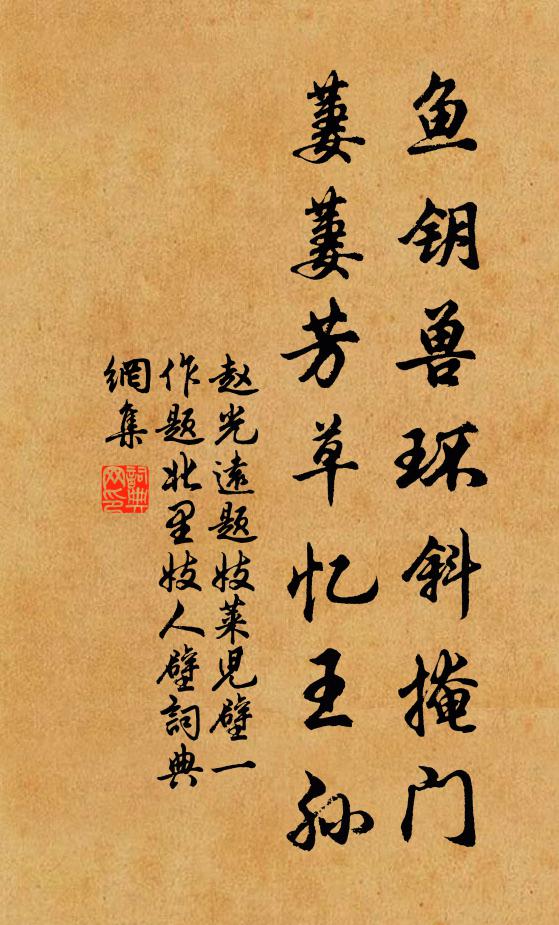 鱼钥兽环斜掩门
萋萋芳草忆王孙
赵光遠题妓莱児壁一
作题北里妓人壁詞典
網集
詞典
网印